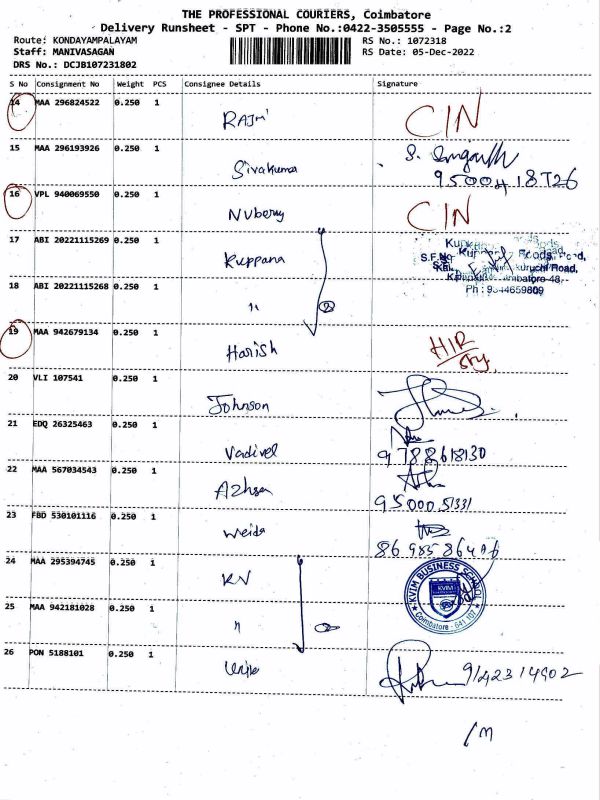 THE PROFESSIONAL COURIERS, Coimbatore
Delivery Runsheet - SPT - Phone No.:0422-3505555 - Page No.:2
Route: KONDAYAMPALAYAM RS No.: 1072318
Staff: MANIVASAGAN RS Date: 05-Dec-2022
DRS No.: DCJB107231802
S No Consignment No Weight PCS Consignee Details Signature
14 MAA 296824522 0.250 1 RAJMI C/N
15 MAA 296193926 0.250 1 Sivakumar S.
16 VPL 940069550 0.250 1 Nuberry C/N
17 ABI 20221115269 0.250 1 Kuppana
Kuruchi Road,
18 ABI 20221115268 0.250 1 " 2
Ph : 9344659809
19 MAA 942679134 0.250 1 Harish
20 VLI 107541 0.250 1 Johnson
21 EDQ 26325463 0.250 1 Vadivel 9788618130
22 MAA 567034543 0.250 1 Azhsa 95000 51331
23 FBD 530101116 0.250 1 Weida
24 MAA 295394745 0.250 1 KV
KVIM BUSINESS SCHOOL
Coimbatore - 641 107
25 MAA 942181028 0.250 1 " 2
26 PON 5188101 0.250 1 9142314902